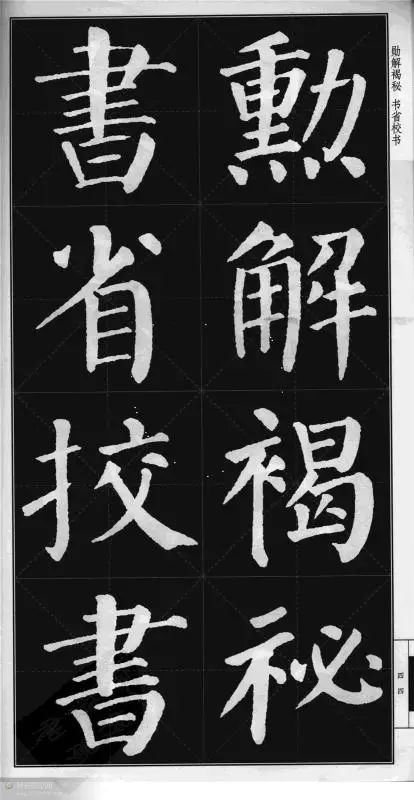 勳解褐祕
書省挍書
勋解褐秘 书省校书
四四